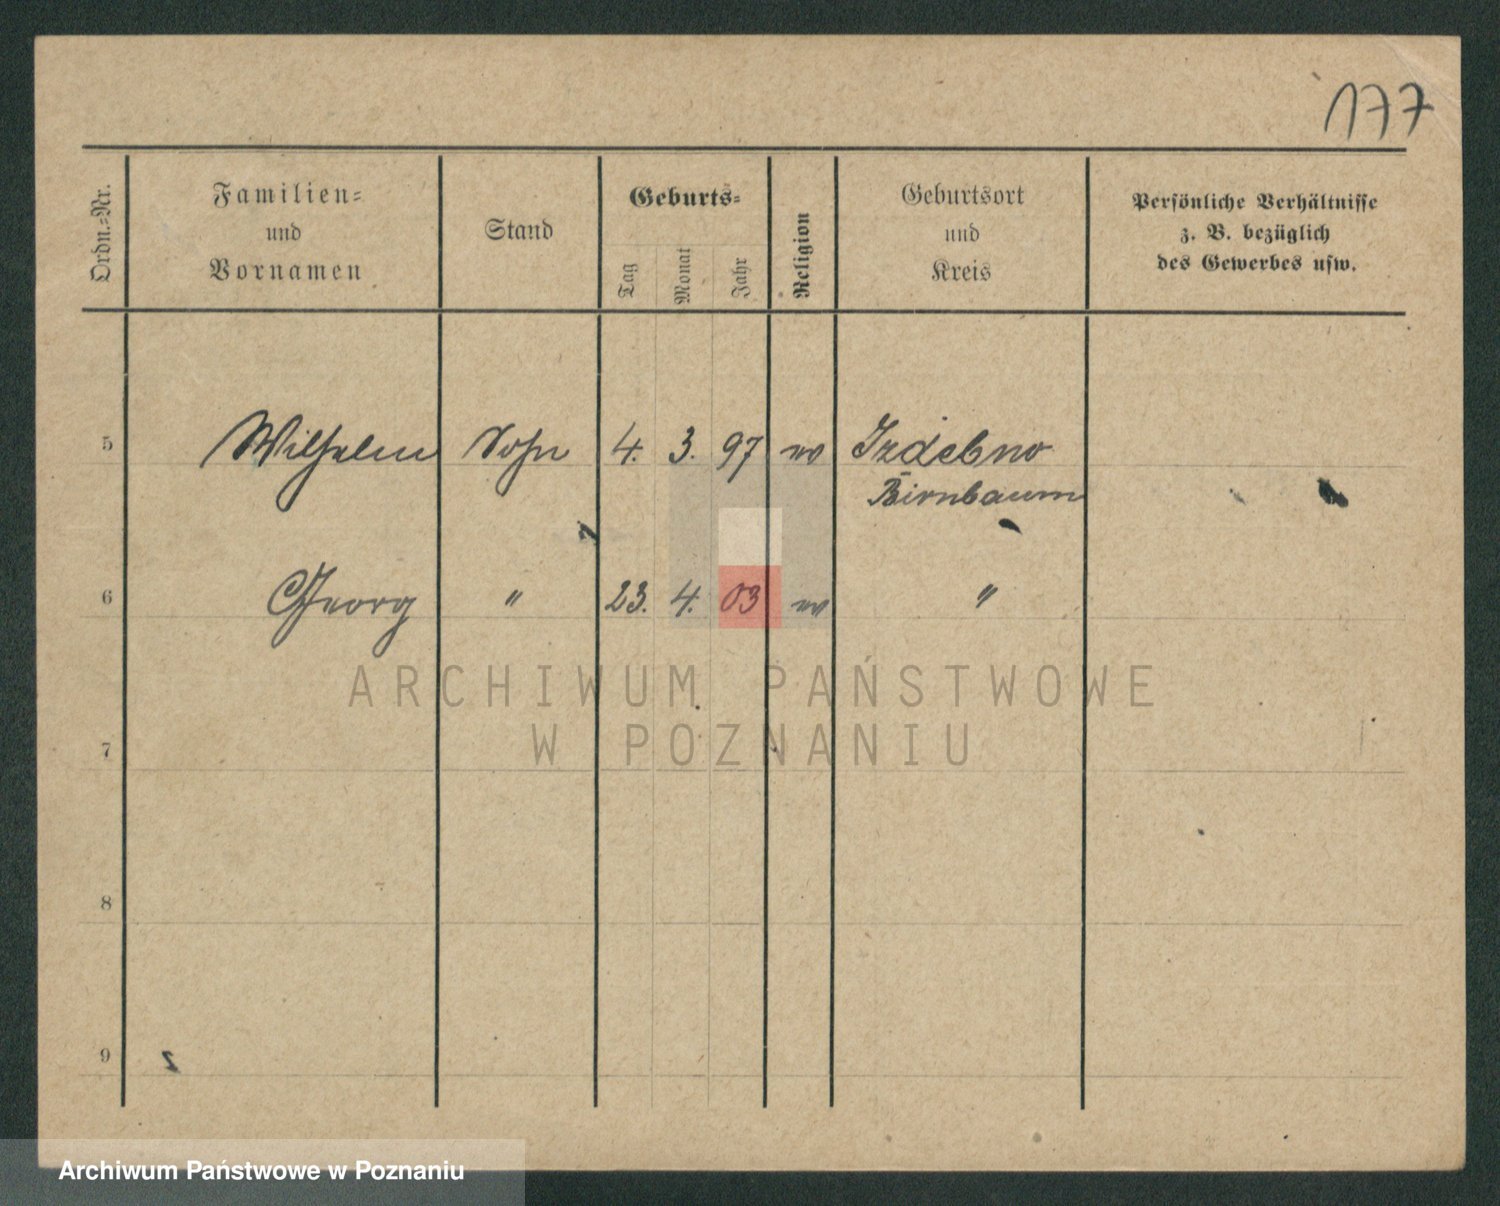 177
Ordn.-Nr.
Familien-
und
Vornamen
Stand
Geburts-
Tag
Monat
Jahr
Religion
Geburtsort
und
Kreis
Persönliche Verhältnisse
z. B. bezüglich
des Gewerbes usw.
5 Wilhelm Sohn 4. 3. 97 ev Izdebno
Birnbaum
6 Georg " 23. 4. 03 ev "
ARCHIWUM PAŃSTWOWE
W POZNANIU
7
8
9
Archiwum Państwowe w Poznaniu